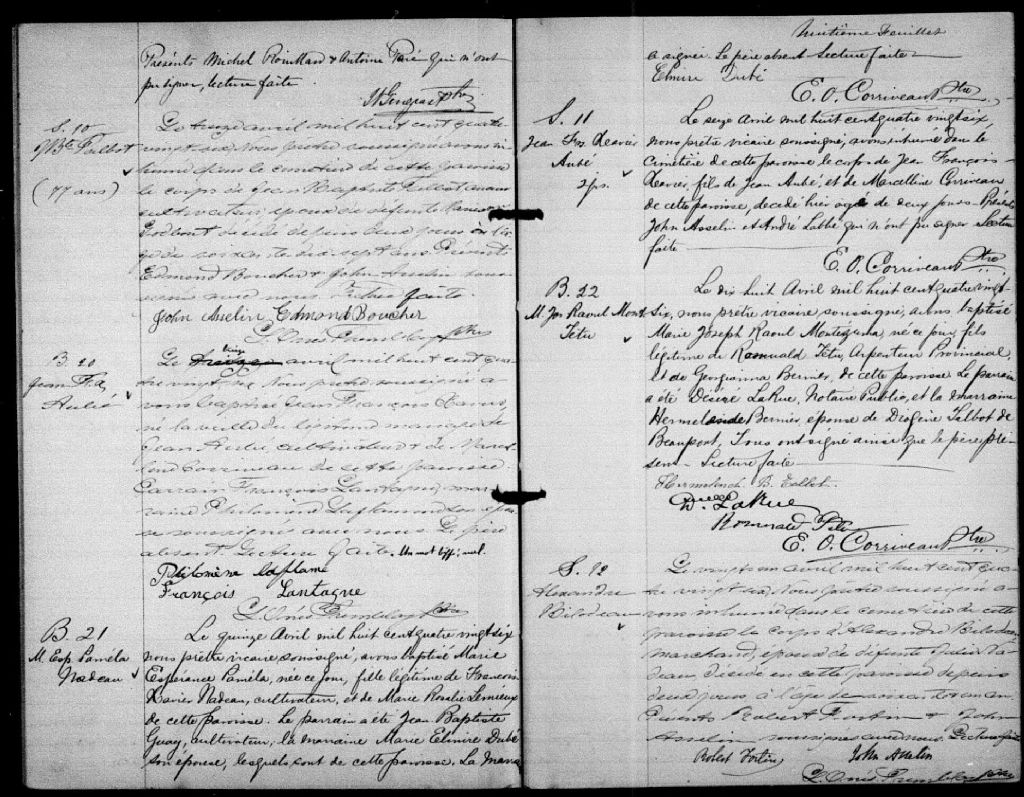 Présents Michel Rouillard & Antoine qui n'ont
pu signer, lecture faite.
Ptre
S. 10
J Bte Talbot
(77 ans)
Le treize avril mil huit cent quatre
vingt six, Nous prêtre soussigné avons in
humé dans le cimetière de cette paroisse
le corps de Jean Baptiste Talbot
cultivateur, époux de défunte
décédé depuis deux jours à l'â
ge de soixante dix sept ans. Présents
Edmond Boucher & John Asselin sous
signés avec nous. Lecture faite.
John Asselin Edmond Boucher
Ptre
B. 20
Jean F. X.
Aubé
quinze
Le treize avril mil huit cent qua
tre vingt six Nous prêtre soussigné a
vons baptisé Jean François Xavier
né la veille du légitime mariage de
Jean Aubé cultivateur & de Marcel
line Corriveau de cette paroisse.
Parrain François Lantagne, mar
raine Philomène Laflamme son épou
se soussignés avec nous. Le père
absent. Lecture faite. Un mot biff: nul.
Philomène Laflame
François Lantagne
Ptre
B. 21
M. Esp. Paméla
Nadeau
Le quinze Avril mil huit cent quatre vingt six
nous prêtre vicaire soussigné, avons baptisé Marie
Espérance Paméla, née ce jour, fille légitime de François
Xavier Nadeau, cultivateur, et de Marie Rosalie Lemieux
de cette paroisse. Le parrain a été Jean Baptiste
Guay, cultivateur, la marraine Marie Elmire Dubé
son épouse, lesquels sont de cette paroisse. La marra
Huitième Feuillet
a signé. Le père absent. Lecture faite
Elmire Dubé
E. O. Corriveau Ptre
S. 11
Jean Frs Xavier
Aubé
2 jrs.
Le seize Avril mil huit cent quatre vingt six,
nous prêtre vicaire soussigné, avons inhumé dans le
Cimetière de cette paroisse le corps de Jean François-
Xavier, fils de Jean Aubé, et de Marcelline Corriveau
de cette paroisse, décédé hier âgé de deux jours. Présents
John Asselin et André Labbé qui n'ont pu signer Lecture
faite
E. O. Corriveau Ptre
B. 22
M. Jos Raoul Mont
Têtu
Le dix huit Avril mil huit cent quatre vingt-
six, nous prêtre vicaire soussigné, avons baptisé
Marie Joseph Raoul Montezuma, né ce jour, fils
légitime de Romuald Têtu, Arpenteur Provincial,
et de Georgianna Bernier, de cette paroisse. Le parrain
a été Désiré LaRue, Notaire Public, et la marraine
Hermelinde Bernier épouse de Diogène Talbot de
Beauport, Tous ont signé ainsi que le père pré-
sent. Lecture faite
B. Talbot
LaRue
Romuald Têtu
E. O. Corriveau Ptre
S. 12
Alexandre
Bilodeau
Le vingt un avril mil huit cent qua
tre vingt six, Nous prêtre soussigné a
vons inhumé dans le cimetière de cette
paroisse le corps d'Alexandre Bilodeau
marchand, époux de défunte Julie Na
deau, décédé en cette paroisse depuis
deux jours, à l'âge de
Présents Robert Fortin & John
Asselin soussignés avec nous. Lecture faite
Robert Fortin John Asselin
Ptre